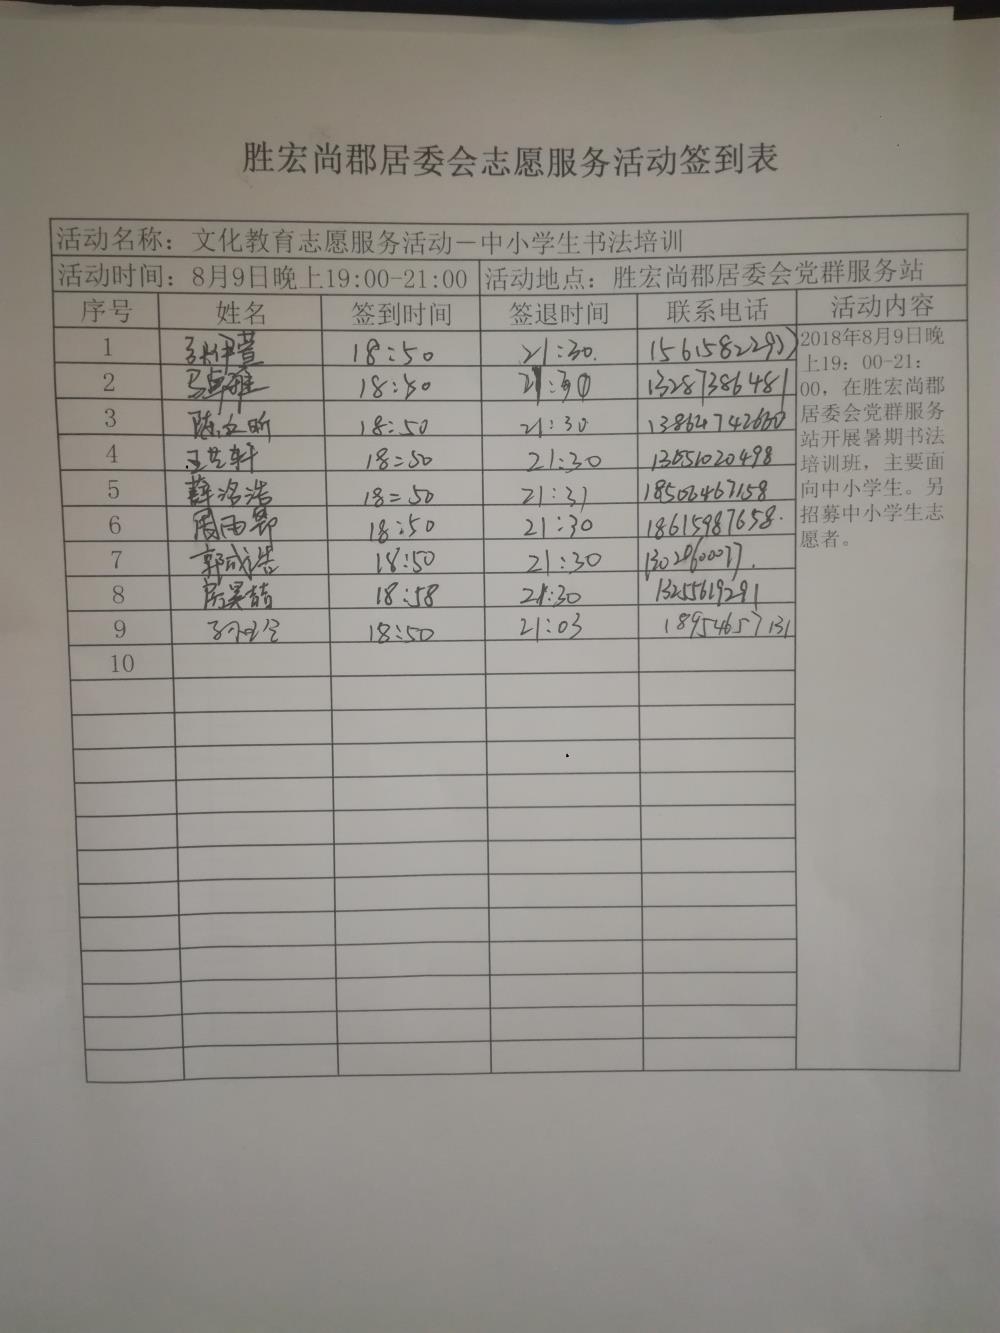 胜宏尚郡居委会志愿服务活动签到表
活动名称：文化教育志愿服务活动－中小学生书法培训
活动时间：8月9日晚上19:00-21:00 活动地点：胜宏尚郡居委会党群服务站
序号 姓名 签到时间 签退时间 联系电话 活动内容
1 张伊萱 18:50 21:30.
2 18:50 21:30 13287386481
3 陈文昕 18:50 21:30 13864742660
4 王艺轩 18=50 21:30 13551020498
5 薛洺浩 18=50 21:31 18506467158
6 周雨昂 18:50 21:30 18615987658.
7 郭成浩 18:50 21:30
8 18:58 21:30 13255619291
9 18:50 21:03 18954657131
10
2018年8月9日晚
上19：00-21：
00，在胜宏尚郡
居委会党群服务
站开展暑期书法
培训班，主要面
向中小学生。另
招募中小学生志
愿者。